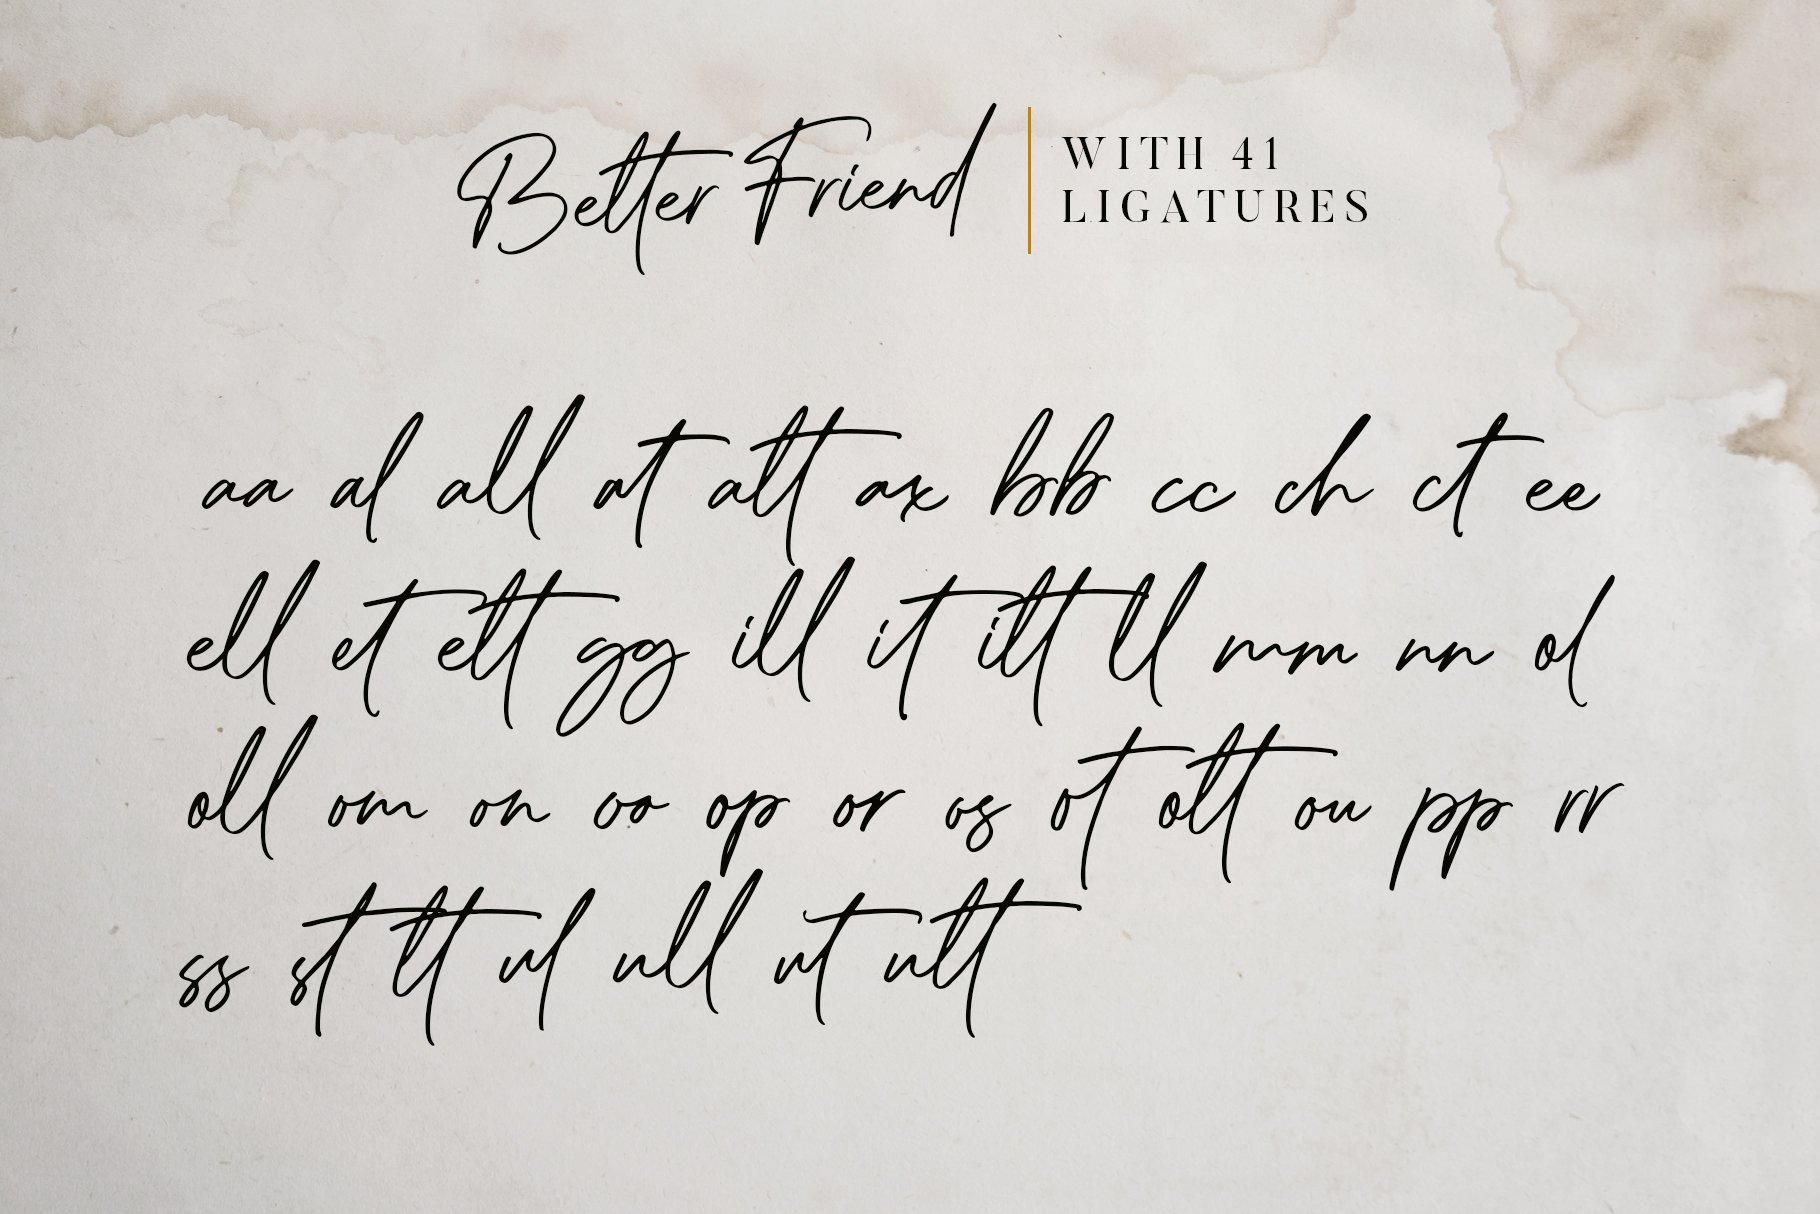 Better Friend
WITH 41
LIGATURES
aa al all at att ax bb cc ch ct ee
ell et ett gg ill it itt ll mm nn ol
oll om on oo op or os ot ott ou pp rr
ss st tt ul ull ut utt